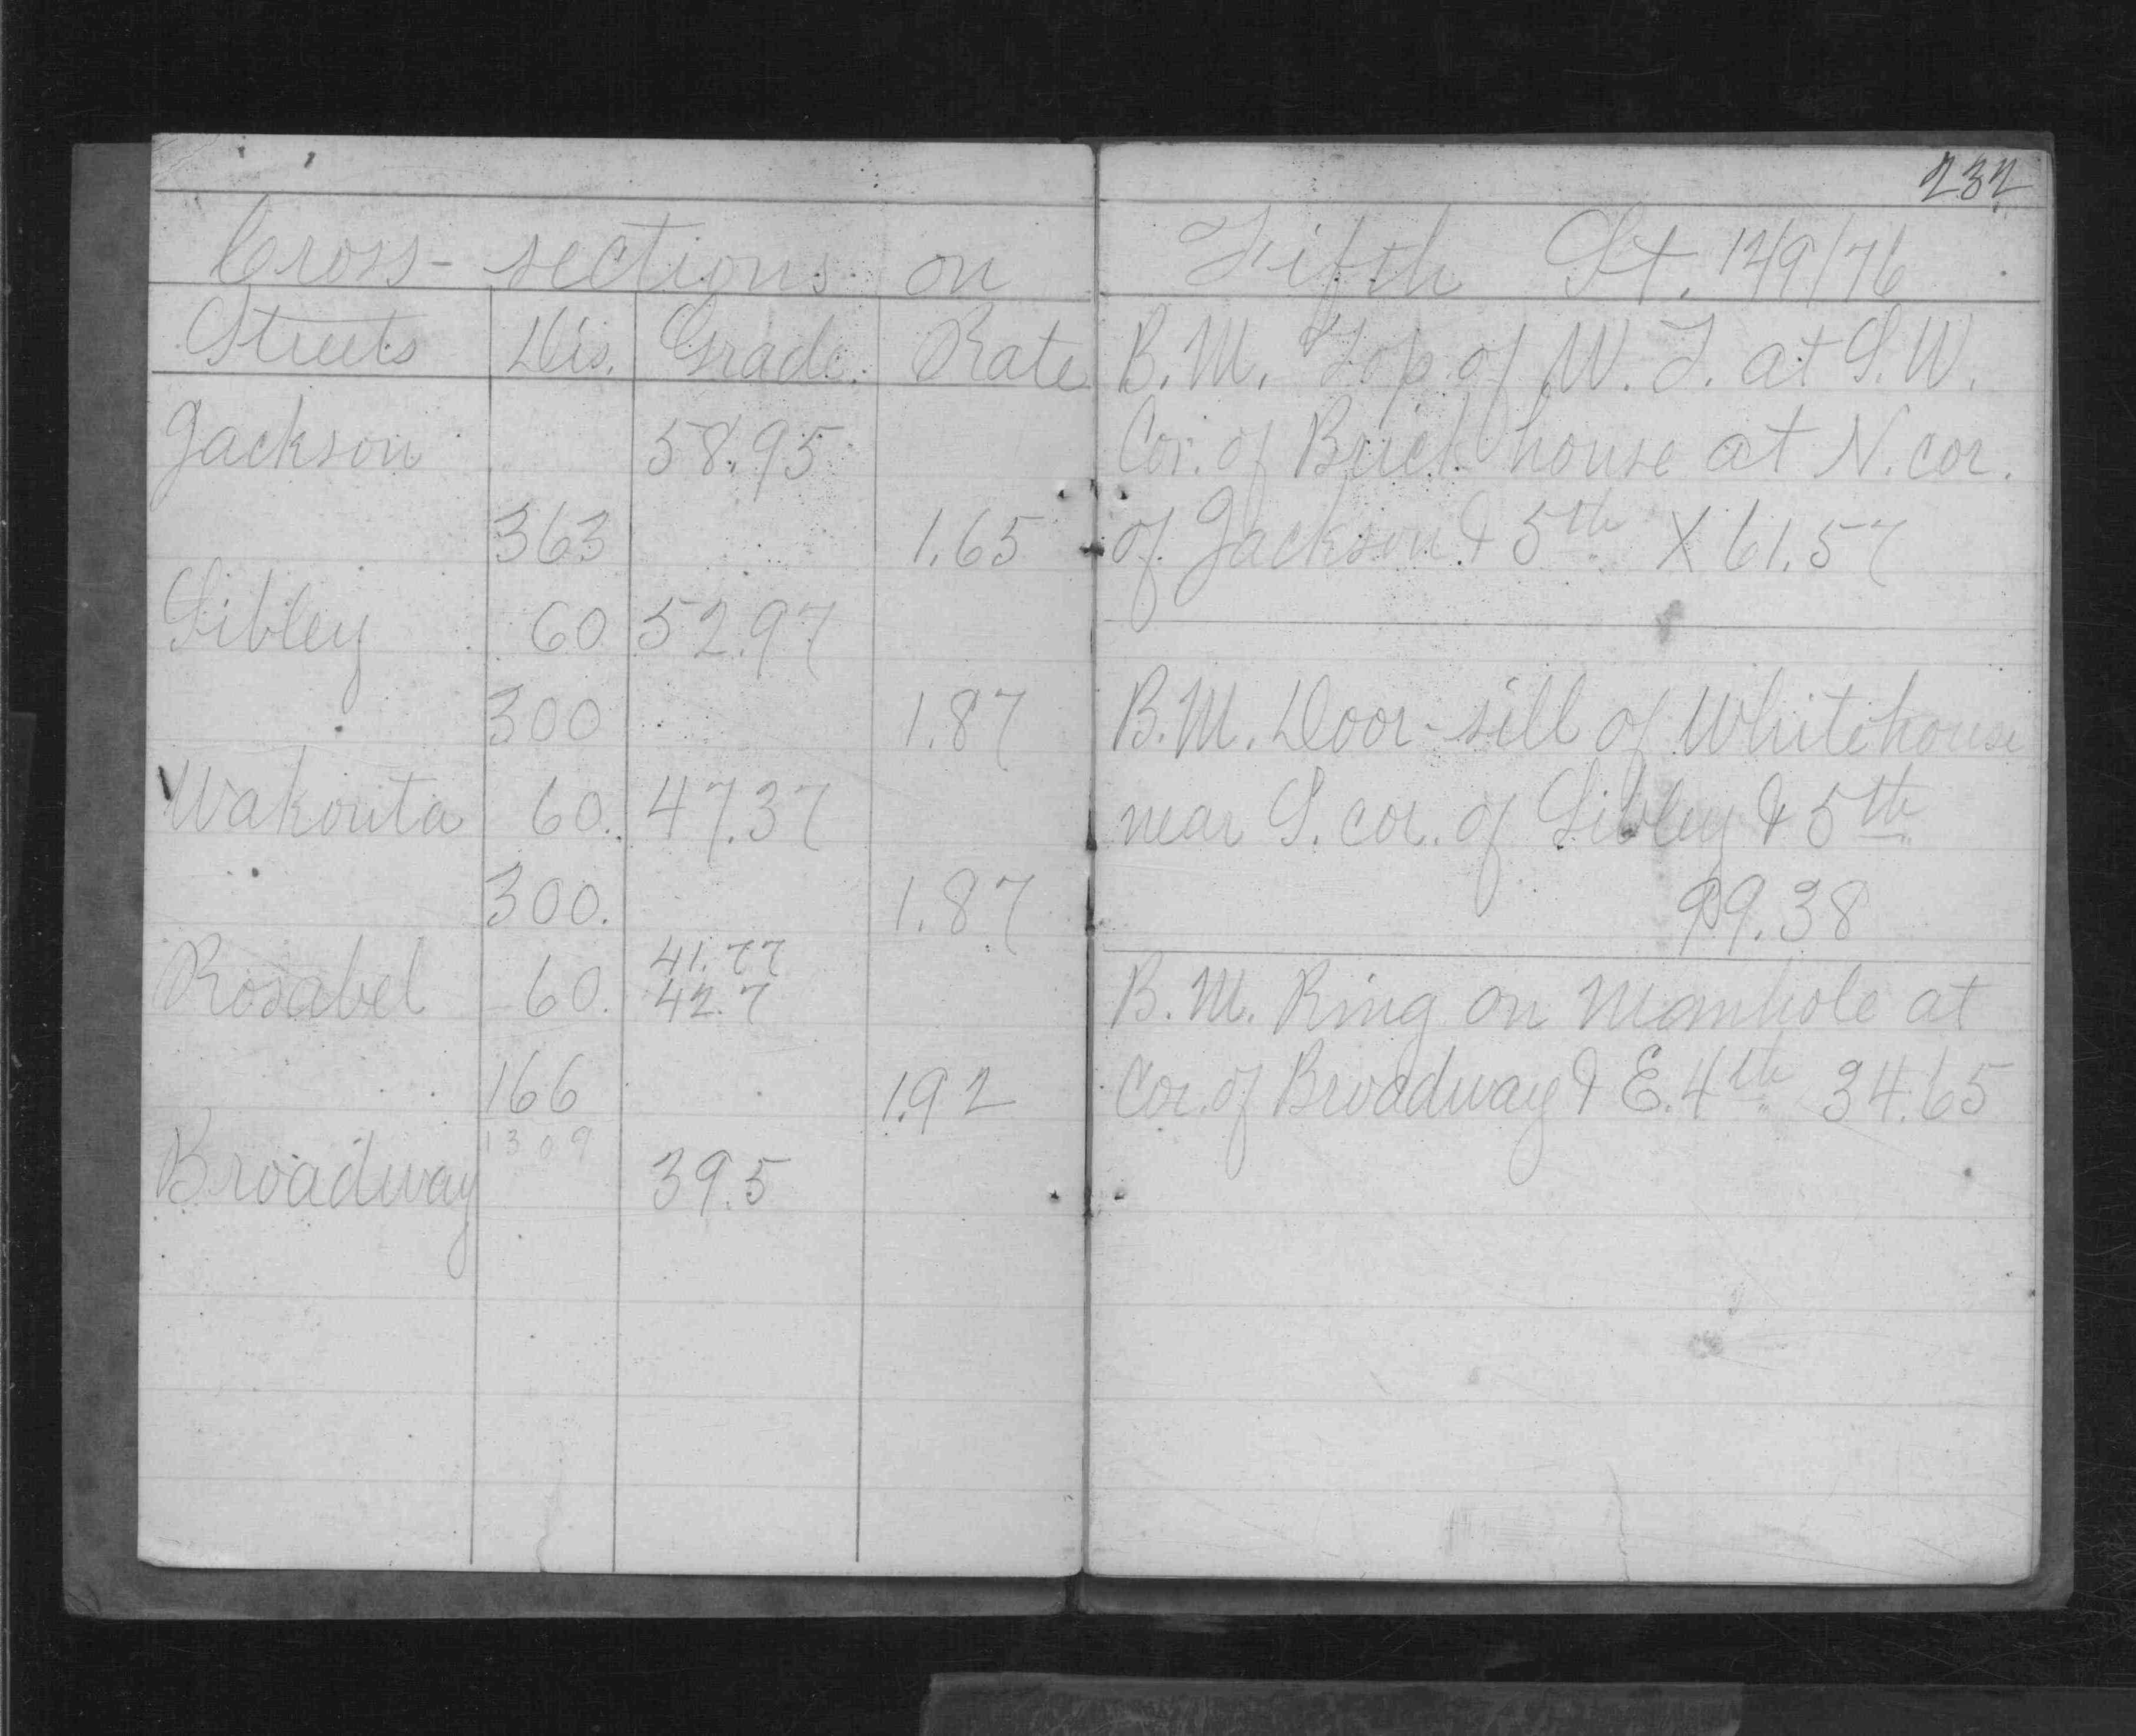 232
Cross-sections on Fifth St. 12/9/76
Streets Dis. Grade. Rate
Jackson 58.95
363 1.65
Sibley 60 52.97
300 1.87
Wakouta 60. 47.37
300. 1.87
Rosabel 60. 41.77
42.7
166 1.92
1309
Broadway 39.5
B.M. Top of W.T. at S.W.
Cor. of Brick house at N. cor.
of Jackson & 5th X 61.57
B.M. Door-sill of Whitehouse
near S. cor. of Sibley & 5th
99.38
B.M. Ring on Manhole at
Cor. of Broadway & E. 4th 34.65